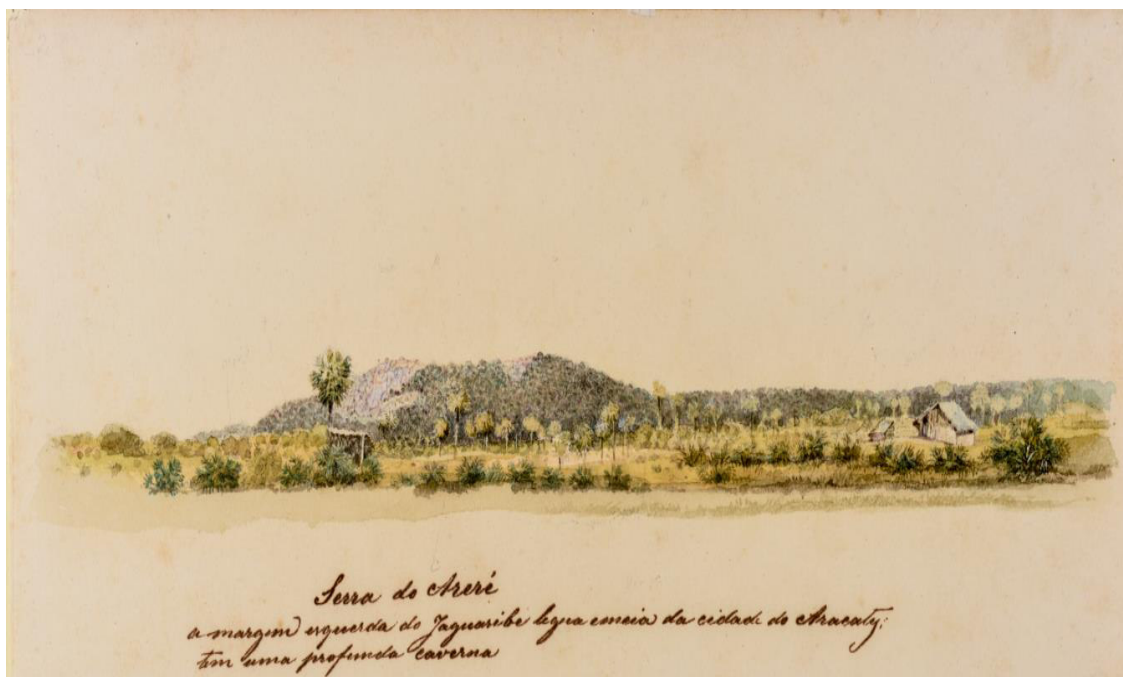 Serra do Areré
a margem esquerda do Jaguaribe legua emeia da cidade do Aracaty;
tem uma profunda caverna